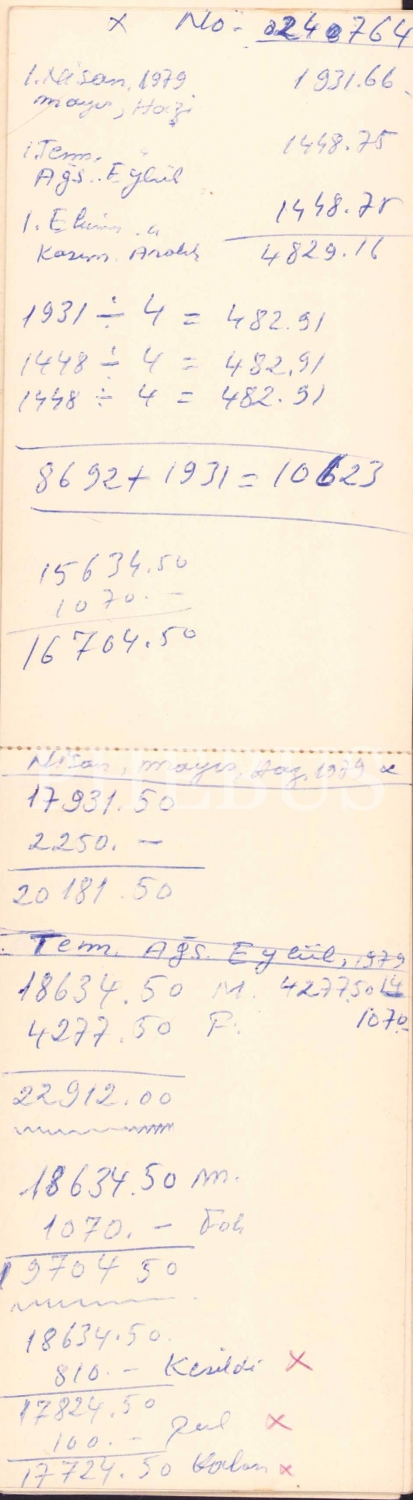 x No - 0240764
1. Nisan, 1979 1931.66
mayıs, Hazi
1. Tem. " 1448.75
Ağs. Eylül
1. Ekim. " 1448.75
Kasım. Aralık 4829.16
1931 ÷ 4 = 482.91
1448 ÷ 4 = 482,91
1448 ÷ 4 = 482.91
8692 + 1931 = 10623
15634.50
1070. -
16704.50
Nisan, mayıs, Haz, 1979 x
17931.50
2250. -
20181.50
Tem. Ağs. Eylül, 1979
18634.50 M. 427750 14
4277.50 F. 1070
22912.00
18634.50 m.
1070. -
19704 50
18634.50.
810. - Kesildi x
17824.50
100. - pul x
17724.50 Kalan x